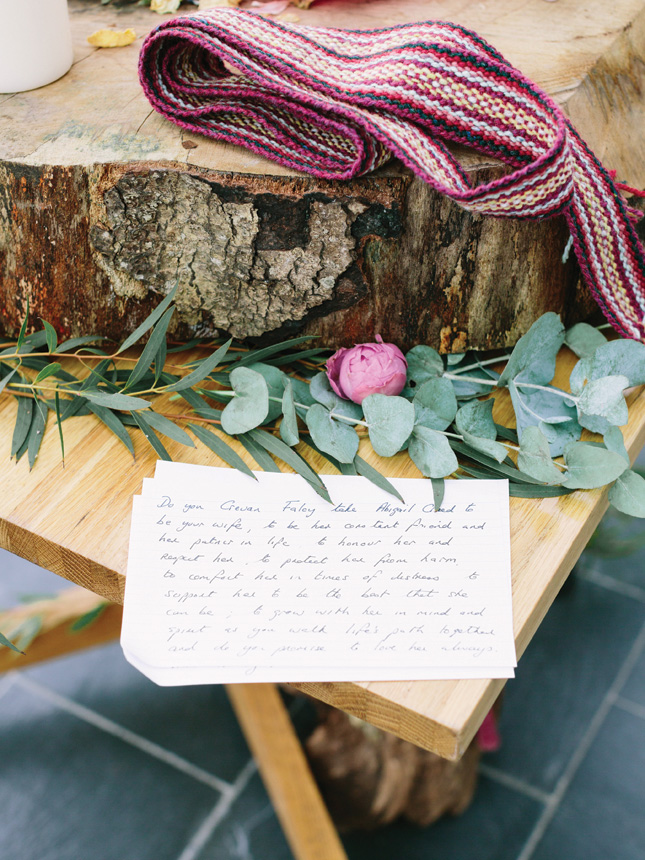 Do you Cieran Faley take Abigail Creed to
be your wife, to be her constant friend and
her partner in life to honour her and
respect her, to protect her from harm,
to comfort her in times of distress to
support her to be the best that she
can be; to grow with her in mind and
spirit as you walk life's path together
and do you promise to love her always.